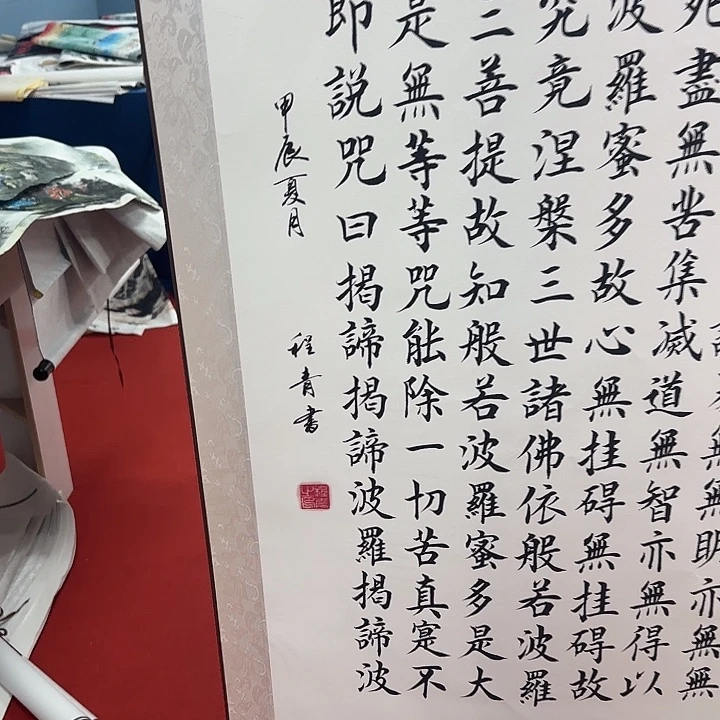 無無明亦無無
死盡無苦集滅道無智亦無得以
波羅蜜多故心無挂碍無挂碍故
究竟涅槃三世諸佛依般若波羅
三菩提故知般若波羅蜜多是大
是無等等咒能除一切苦真寔不
即說咒曰揭諦揭諦波羅揭諦波
甲辰夏月
程青書